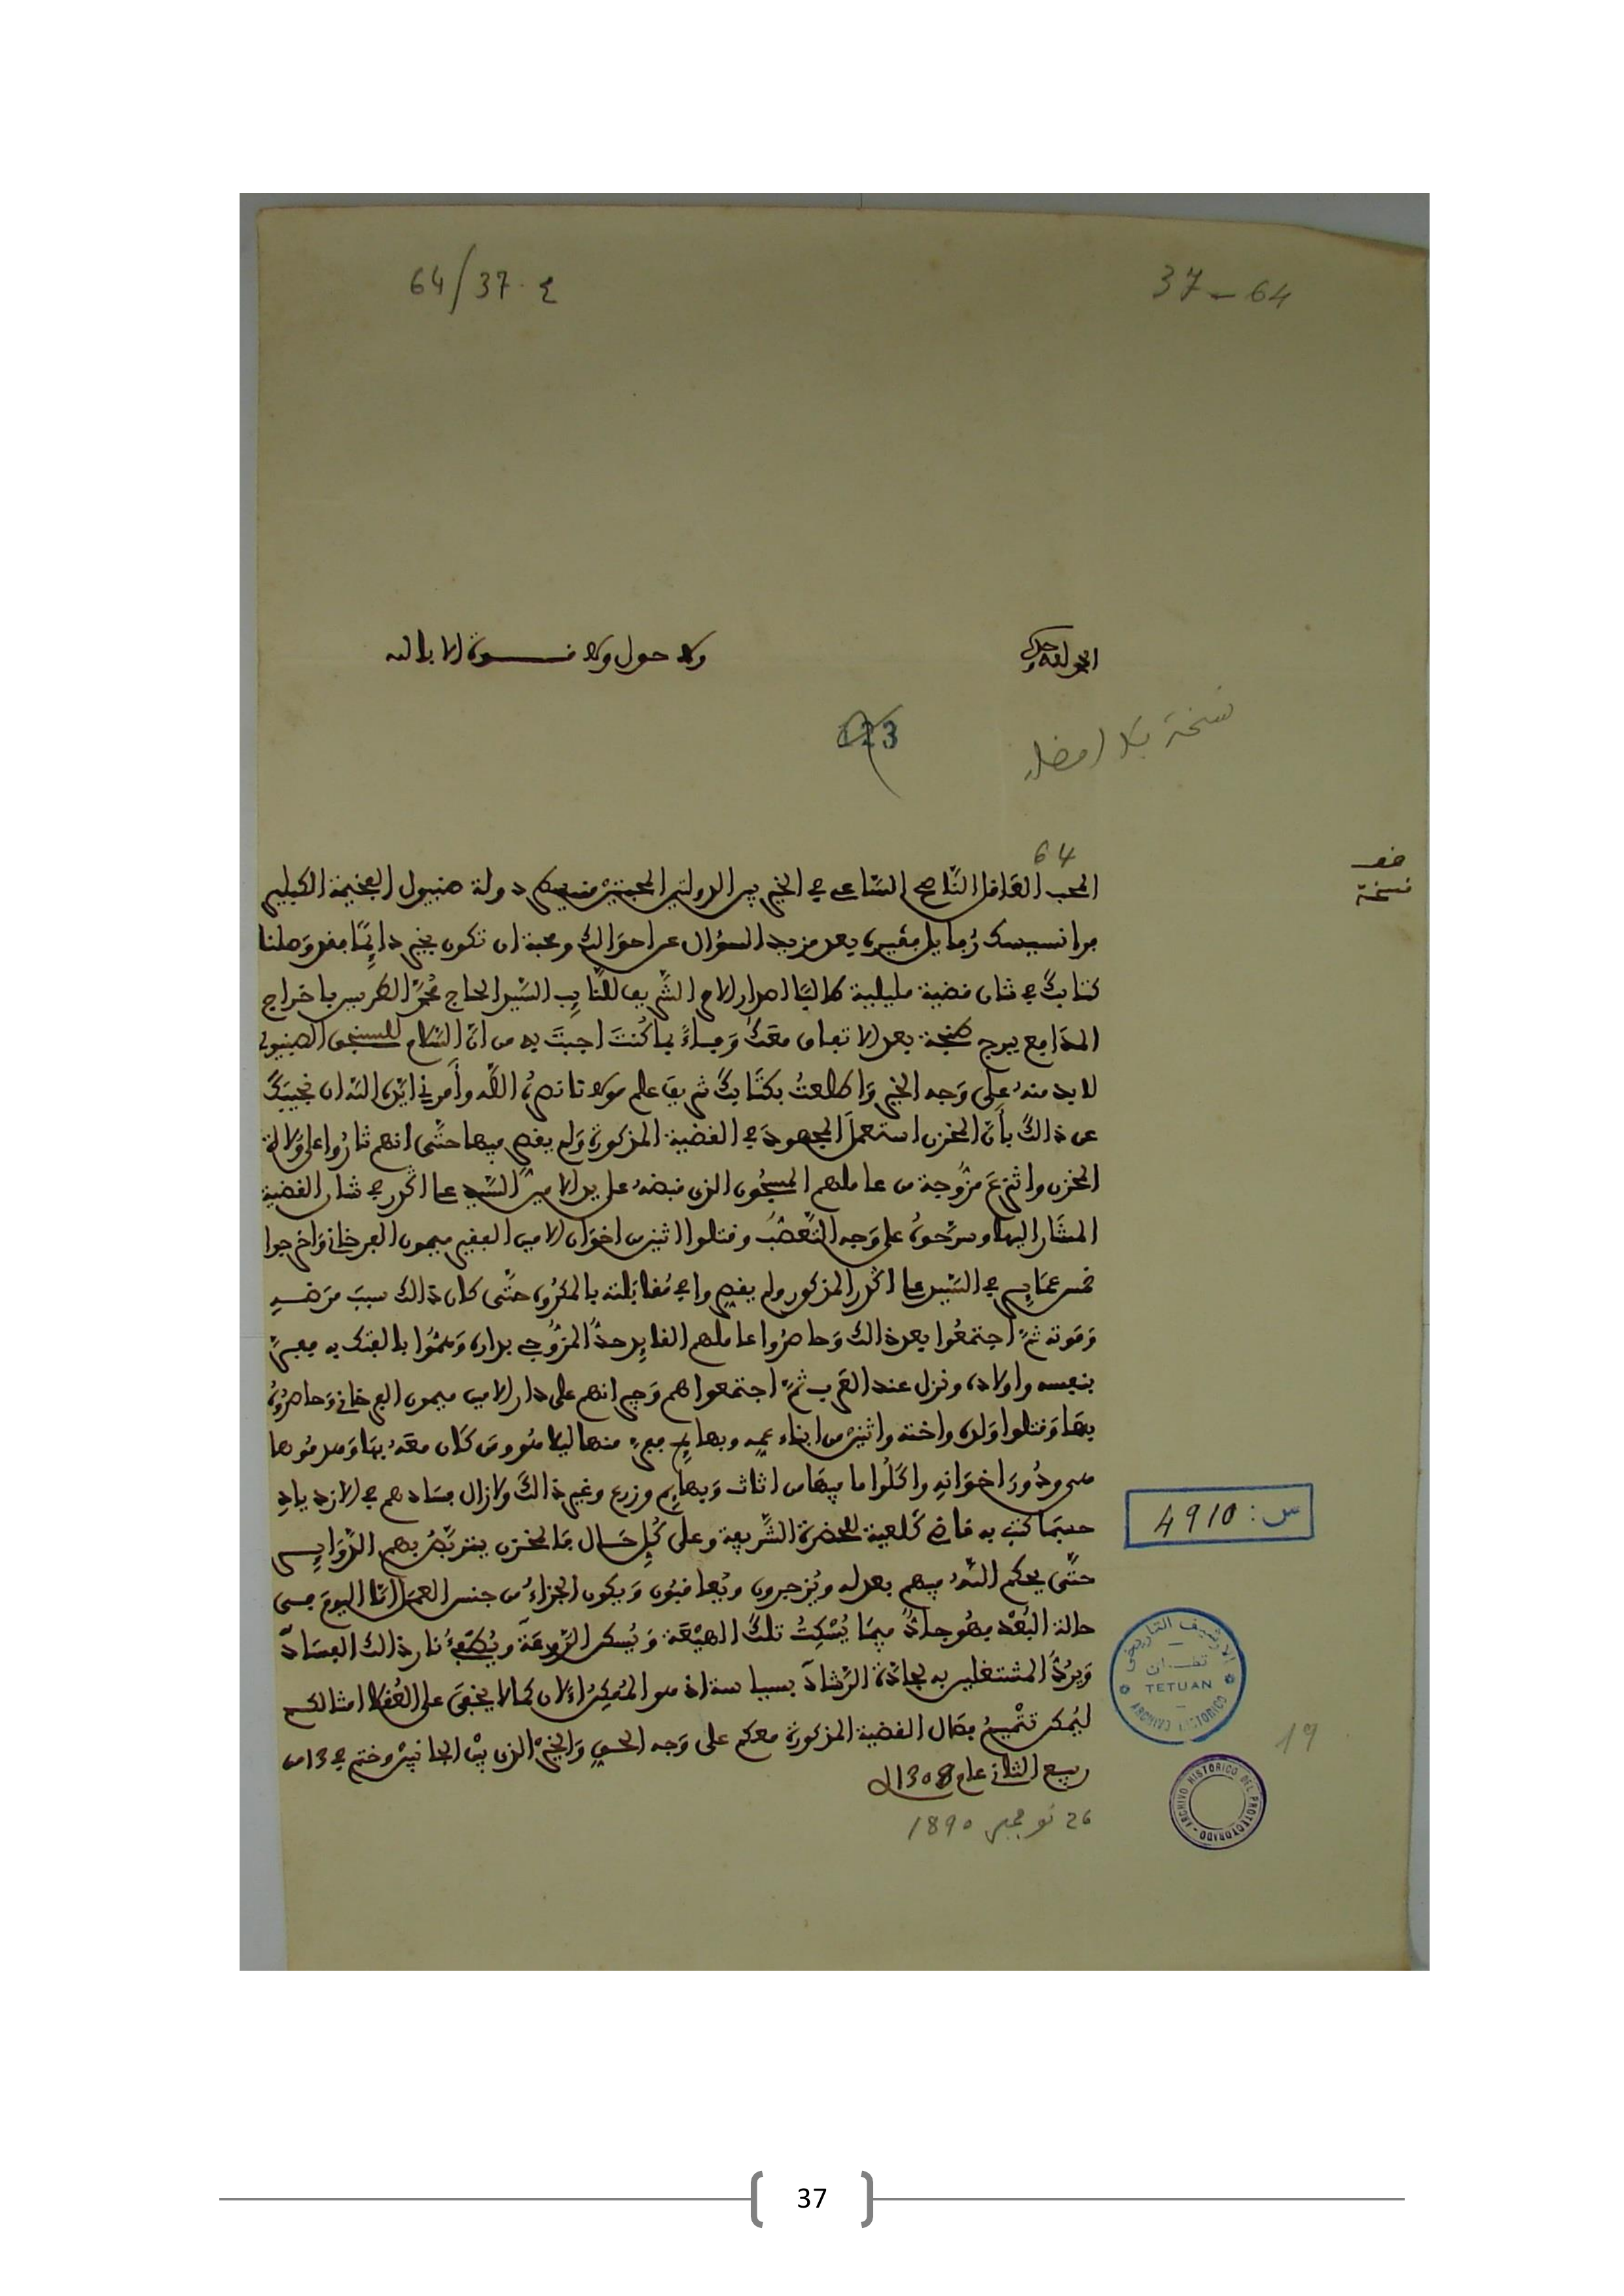 64/37.ع
37-64
الحمد لله وحده
ولا حول ولا قوة الا بالله
123
نسخة بلا امضاء
64
نسخة
المحب العاقل الناصح الساعي في الخير بين الدولتين المحبتين دولة صنيول الفخيمة الكبلير
فرانسيسك بعد مزيد السؤال عن احوالك ومحبة ان تكون بخير دائما فقد وصلنا
كتابك في شان قضية مليلية طالبا اصدار الامر الشريف للنائب السيد الحاج محمد الطريس باخراج
المدافع ببرج طنجة بعد الاتفاق معك وفاء بما كنت اجبت به من ان السلام للسنجق الصنيولي
لابد منه على وجه الخير واطلعت بكتابك شريف علم مولانا نصره الله وأمرني ايده الله ان نجيبك
عن ذالك بأن المخزن استعمل المجهود في القضية المذكورة ولم يقصر فيها حتى انهم ثاروا على ولاة
المخزن وانتزع مزوجة من عاملهم المسجون الذي قبضه على يد الامين السيد في شان القضية
المشار اليها وسرحوه على وجه التعصب وقتلوا اثنين من اخوان الامين الفقير ميمون الفرخاني واخرجوا
خمس عماير في السيد المذكور ولم يقصروا في مقابلته بالمكروه حتى كان ذالك سبب مرضه
وموته ثم اجتمعوا بعد ذالك وحاصروا عاملهم القايد حد المزوجي بداره وهموا بالفتك به ففر
بنفسه واولاده ونزل عند العرب ثم اجتمعوا هم وجيرانهم على دار الامين ميمون الفرخاني وحاصروه
بها وقتلوا ولده واخته واثنين من ابناء عمه وبهايم ففر منها ليلا هو ومن كان معه بها وهدموها
هي ودور اخوانه واكلوا ما فيها من اثاث وبهايم وزرع وغير ذالك ولازال فسادهم في الازدياد
حسبما كتب به قاضي كلعية للحضرة الشريفة وعلى كل حال فالمخزن يتربص بهم الدواير
حتى يحكم الله فيهم بعدله ويزجرون ويعاقبون ويكون الجزاء من جنس العمل اما اليوم ففي
حالة البعد فهو جاد فيما يسكت تلك الهيعة ويسكن الروعة ويطفئ نار ذالك الفساد
ويرد المشتغلين به لجادة الرشاد بسياسة اذ هو الممكن الان كما لا يخفى على العقلاء امثالكم
ليمكن تتميم فصال القضية المذكورة معكم على وجه الحسن والخير الذي بين الجانبين وختم في 13 من
ربيع الثاني عام 1308
26 نوفمبر 1890
س: 4910
الارشيف التاريخي
تطوان
TETUAN
ARCHIVO HISTORICO
19
ARCHIVO HISTORICO DEL PROTECTORADO
37